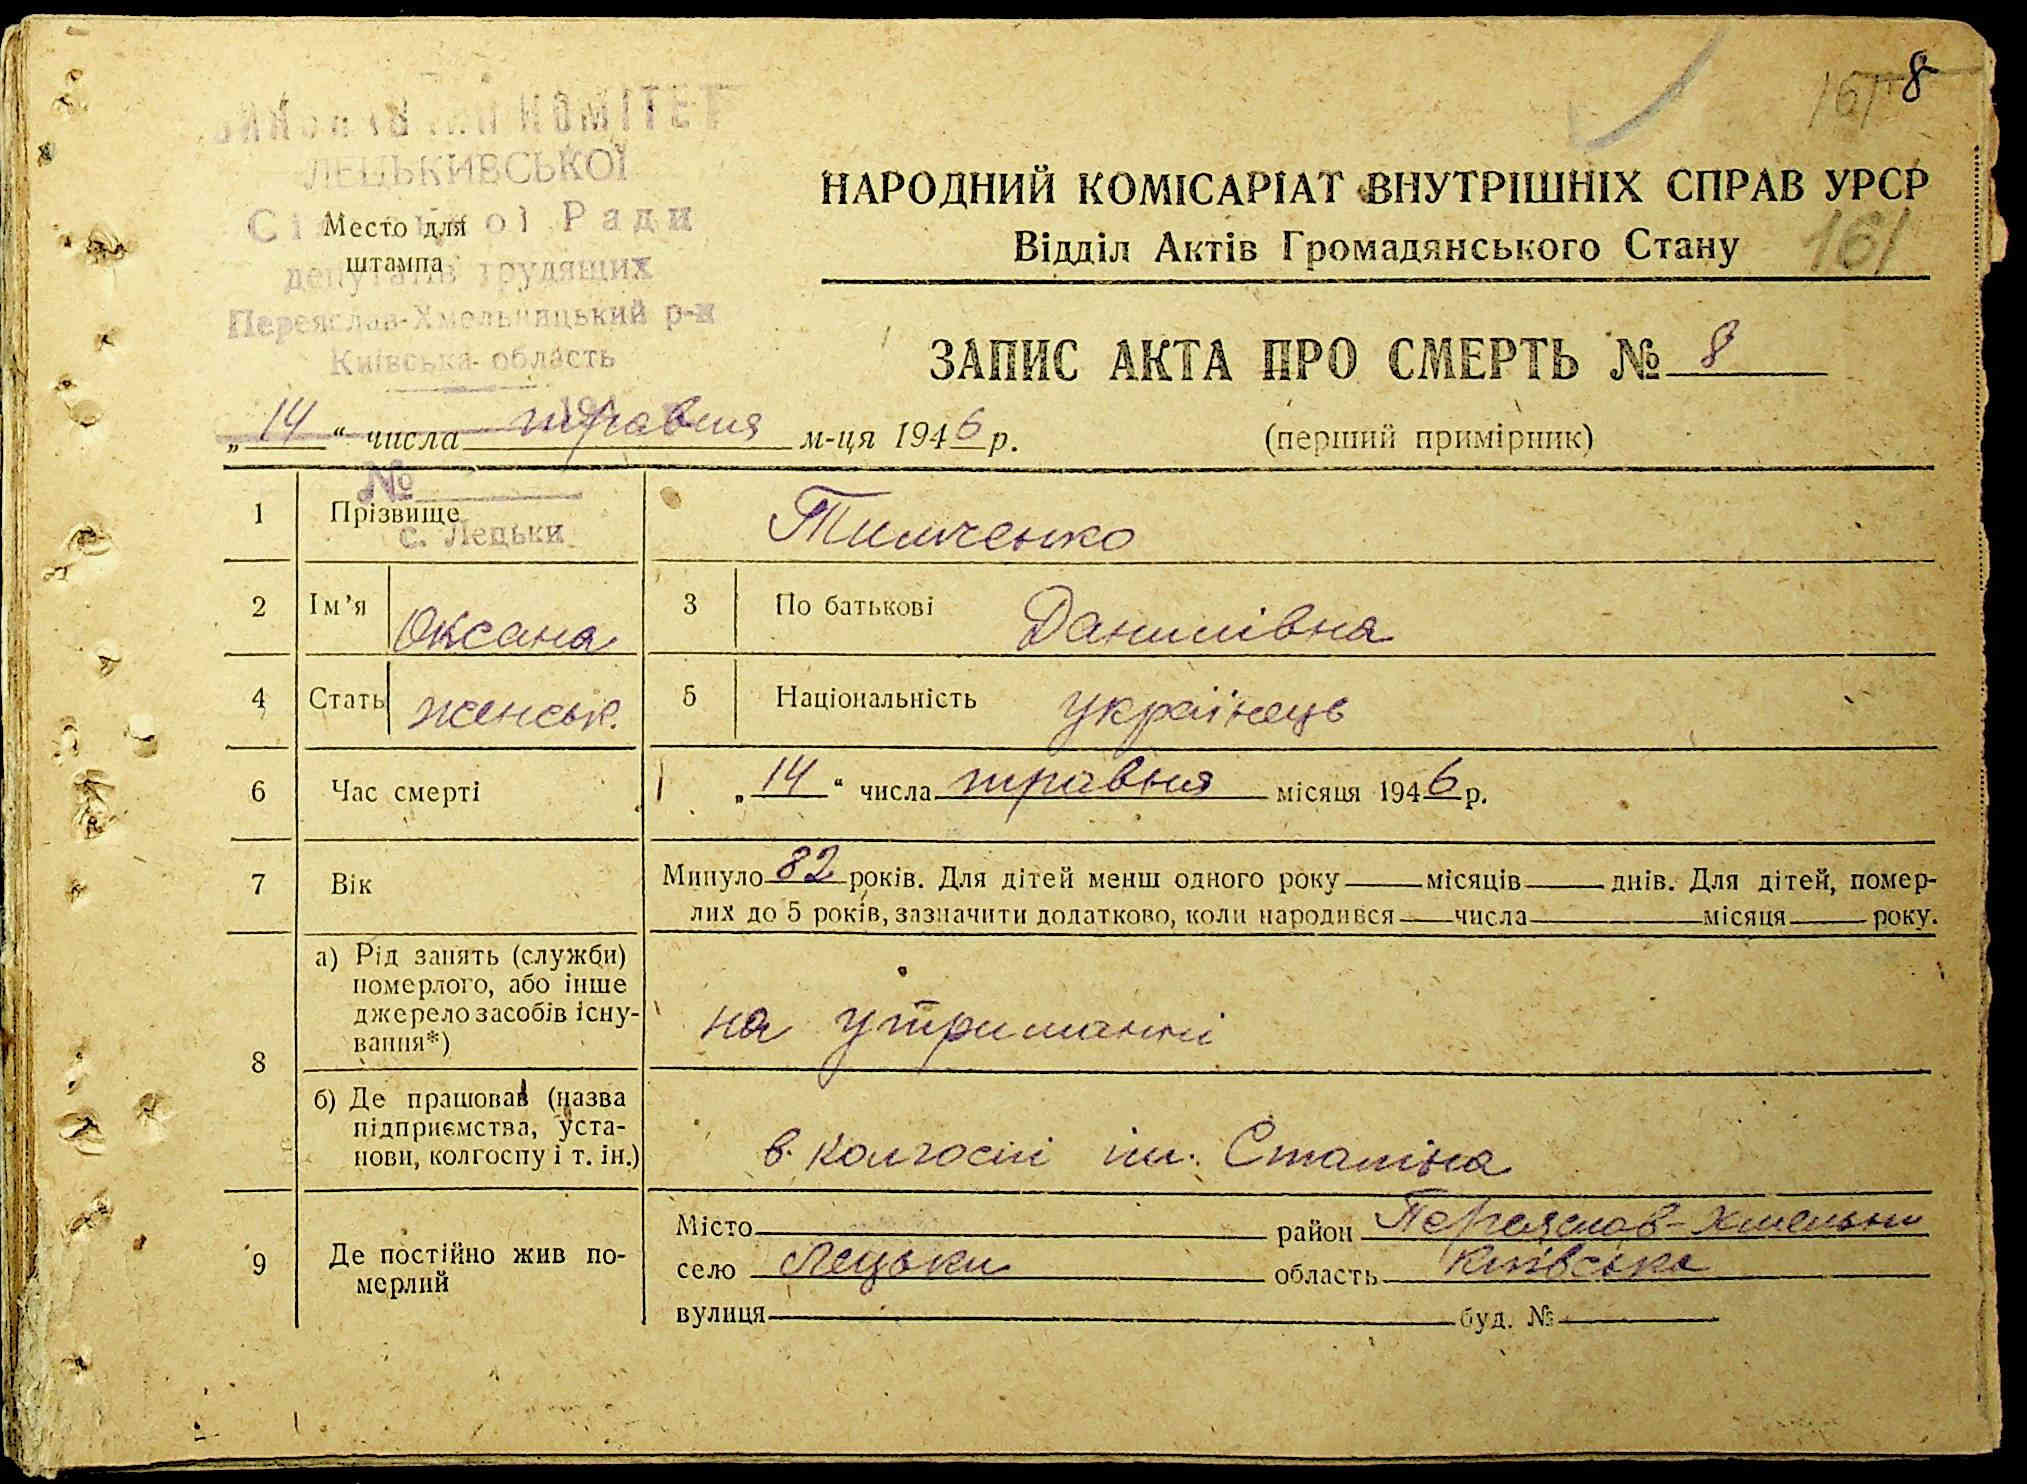 КОМІТЕТ
ЛЕЦЬКИВСЬКОЇ
Ради
Место для
штампа
депутатів трудящих
Переяслав-Хмельницький р-н
Київська область
№
с. Лецьки
161 8
НАРОДНИЙ КОМІСАРІАТ ВНУТРІШНІХ СПРАВ УРСР
Відділ Актів Громадянського Стану
161
ЗАПИС АКТА ПРО СМЕРТЬ № 8
„14“ числа травня м-ця 1946 р.
(перший примірник)
1 Прізвище Тимченко
2 Ім’я Оксана 3 По батькові Данилівна
4 Стать женськ. 5 Національність українець
6 Час смерті „14“ числа травня місяця 1946 р.
7 Вік Минуло 82 років. Для дітей менш одного року місяців днів. Для дітей, помер-
лих до 5 років, зазначити додатково, коли народився числа місяця року.
8 а) Рід занять (служби)
померлого, або інше
джерело засобів існу-
вання*)
на утриманні
б) Де працював (назва
підприємства, уста-
нови, колгоспу і т. ін.)
в. колгоспі ім. Сталіна
9 Де постійно жив по-
мерлий
Місто район Переяслав-Хмельн
село Лецьки область Київська
вулиця буд. №